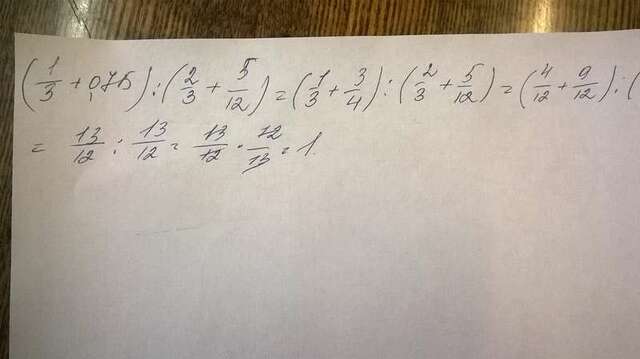 (1/3 + 0,75) : (2/3 + 5/12) = (1/3 + 3/4) : (2/3 + 5/12) = (4/12 + 9/12) : (
= 13/12 : 13/12 = 13/12 · 12/13 = 1.